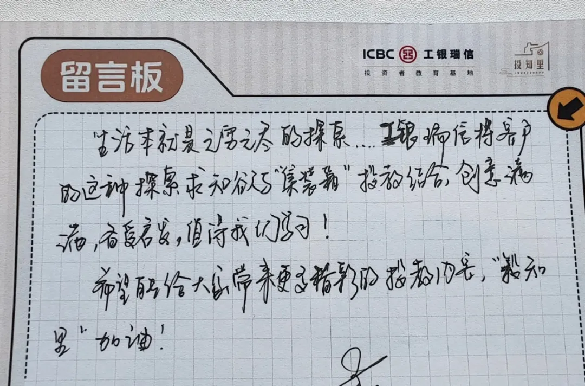 留言板
ICBC 工银瑞信
投资者教育基地
投知里
生活本就是无穷无尽的探索...工银瑞信将客户
的这种探索求知欲与“集装箱”投教结合,创意满
满,备受启发,值得我们学习!
希望能给大家带来更多精彩的投教内容,“投知
里”加油!